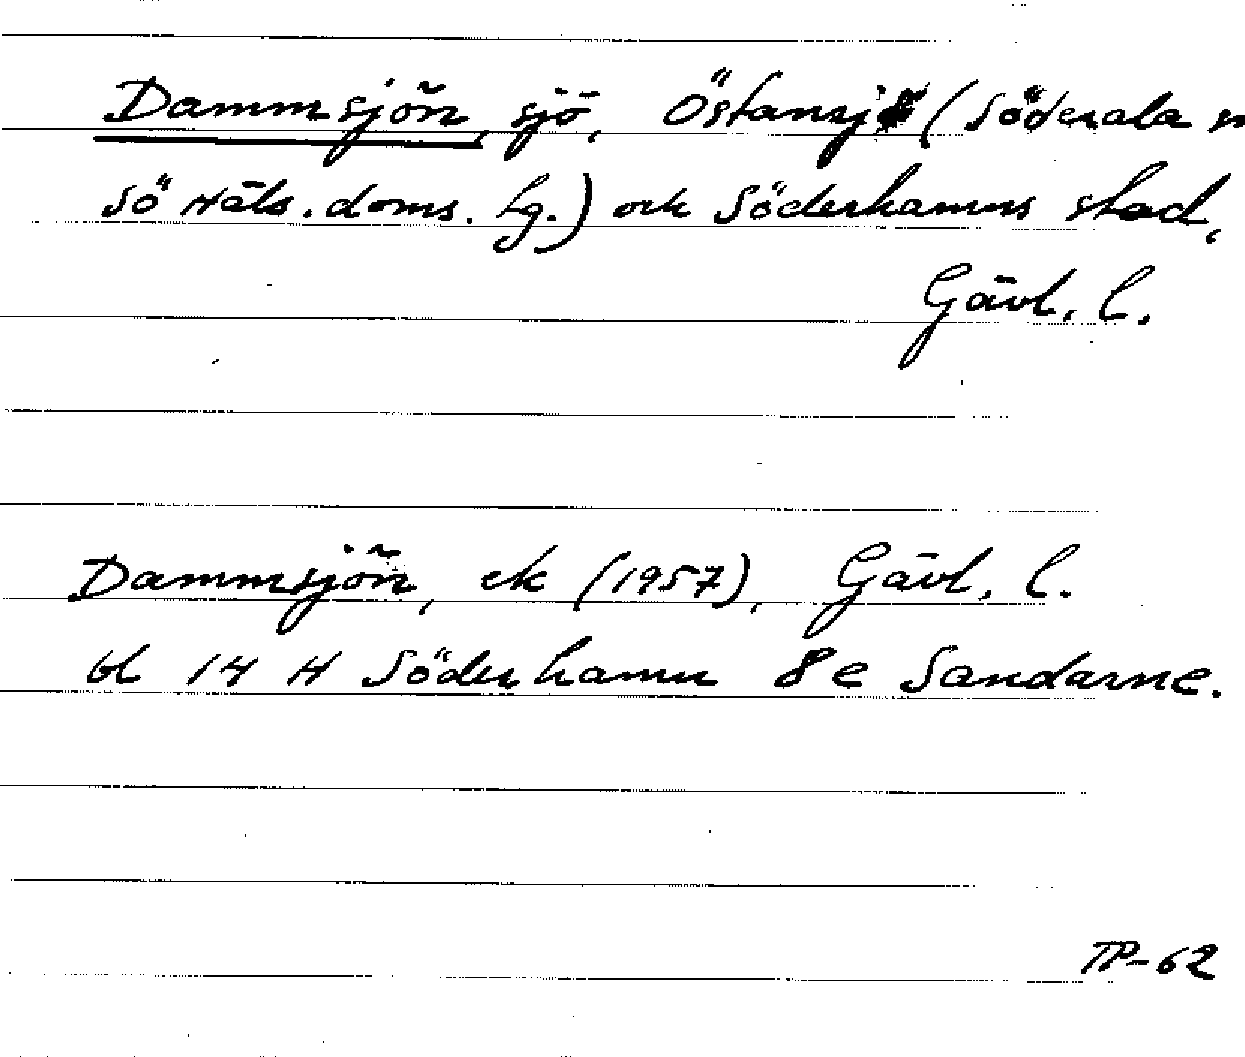 Dammsjön, sjö, Östansjö (Söderala
Sö Häls. doms. lg.) och Söderhamns stad,
Gävl. l.
Dammsjön, ek (1957), Gävl. l.
bl 14 H Söderhamn 8e Sandarne.
TP-62